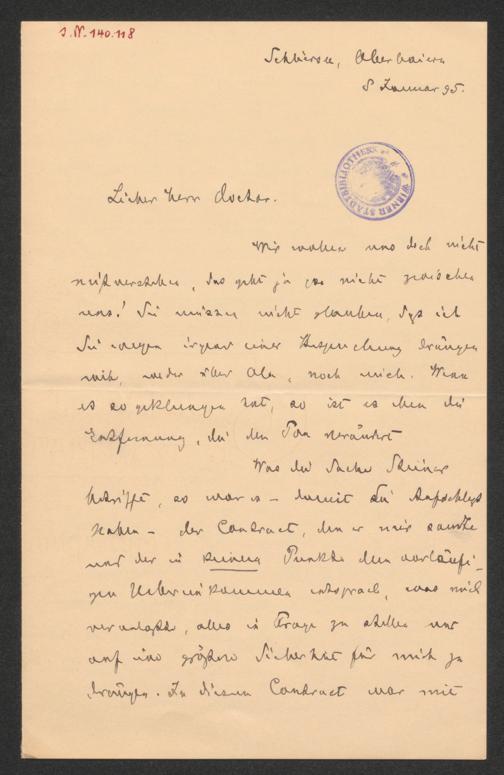 J.N. 140.118
Schliersee, Oberbaiern
8 Januar 95.
WIENER STADTBIBLIOTHEK
Lieber Herr Doctor.
Wir wollen uns doch nicht
mißverstehen, das geht ja gar nicht zwischen
uns! Sie müssen nicht glauben, daß ich
Sie wegen irgend einer Besprechung drängen
will, weder über Ola, noch mich. Wenn
es so geklungen hat, so ist es eben die
Entfernung, die den Ton verändert
Was die Sache Steiner
betrifft, so war es – damit Sie Aufschluß
haben – der Contract, den er mir sandte
und der in keinem Punkte dem vorläufi-
gen Uebereinkommen entsprach, was mich
veranlaßte, alles in Frage zu stellen und
auf eine größere Sicherheit für mich zu
drängen. In diesem Contract war mit